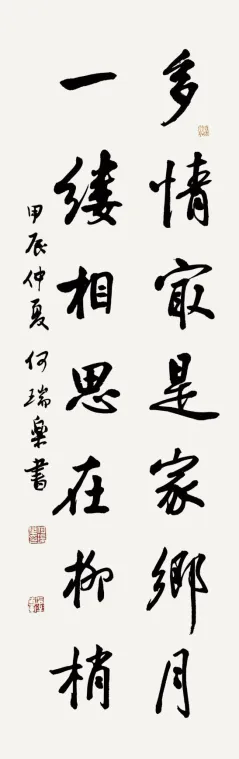 多情冣是家鄉月
一縷相思在柳梢
甲辰仲夏 何瑞樂書